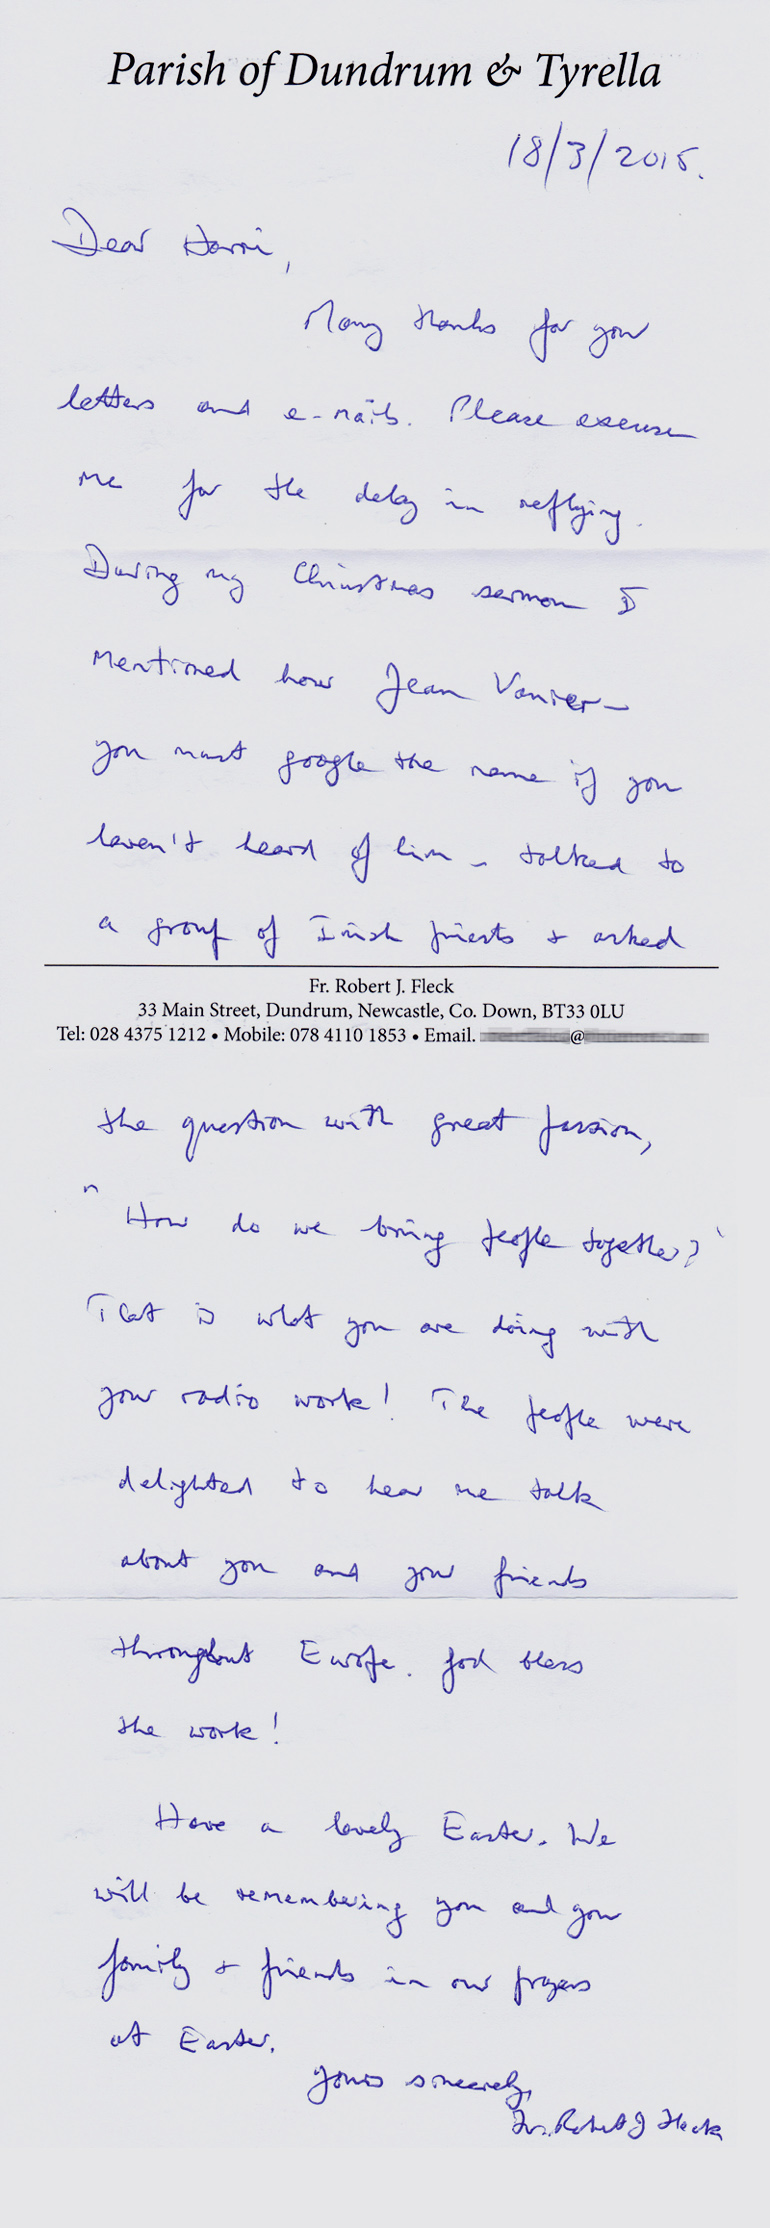 Parish of Dundrum & Tyrella
18/3/2015.
Dear Harri,
Many thanks for your
letters and e-mails. Please excuse
me for the delay in replying.
During my Christmas sermon I
mentioned how Jean Vanier –
you must google the name if you
haven't heard of him – talked to
a group of Irish priests + asked
Fr. Robert J. Fleck
33 Main Street, Dundrum, Newcastle, Co. Down, BT33 0LU
Tel: 028 4375 1212 • Mobile: 078 4110 1853 • Email. @
the question with great passion,
"How do we bring people together?'
That is what you are doing with
your radio work! The people were
delighted to hear me talk
about you and your friends
throughout Europe. God bless
the work!
Have a lovely Easter. We
will be remembering you and your
family + friends in our prayers
at Easter.
Yours sincerely,
Fr. Robert J Fleck